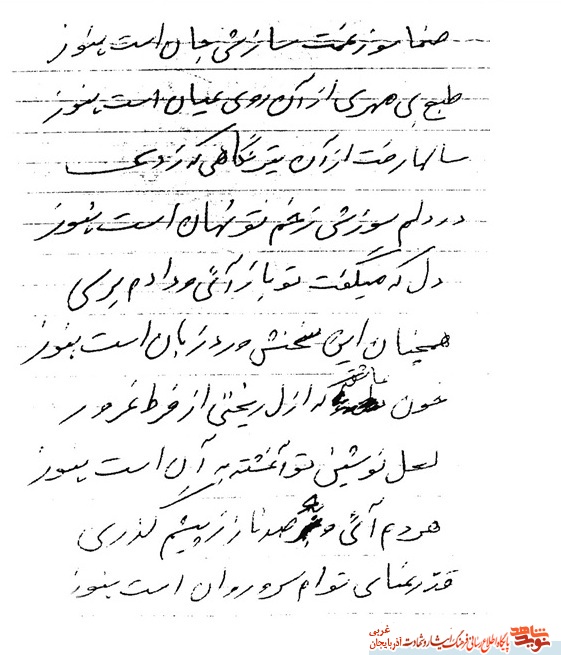 صنما سوز غمت سازش جان است هنوز
طبع بی مهری از آن روی عیان است هنوز
سالها رفت از آن تیر نگاهی که زدی
در دلم سوزش زخم تو نهان است هنوز
دل که میگفت تو باز آئی و دادم برسی
همچنان این سخنش ورد زبان است هنوز
خون عاشق که ازل ریختی از فرط غرور
لعل نوشین تو آغشته به آن است هنوز
هر دم آئی و به صد ناز ز پیشم گذری
قد رعنای توام سرو روان است هنوز
نوید شاهد
پایگاه اطلاع رسانی فرهنگ ایثار و شهادت آذربایجان غربی